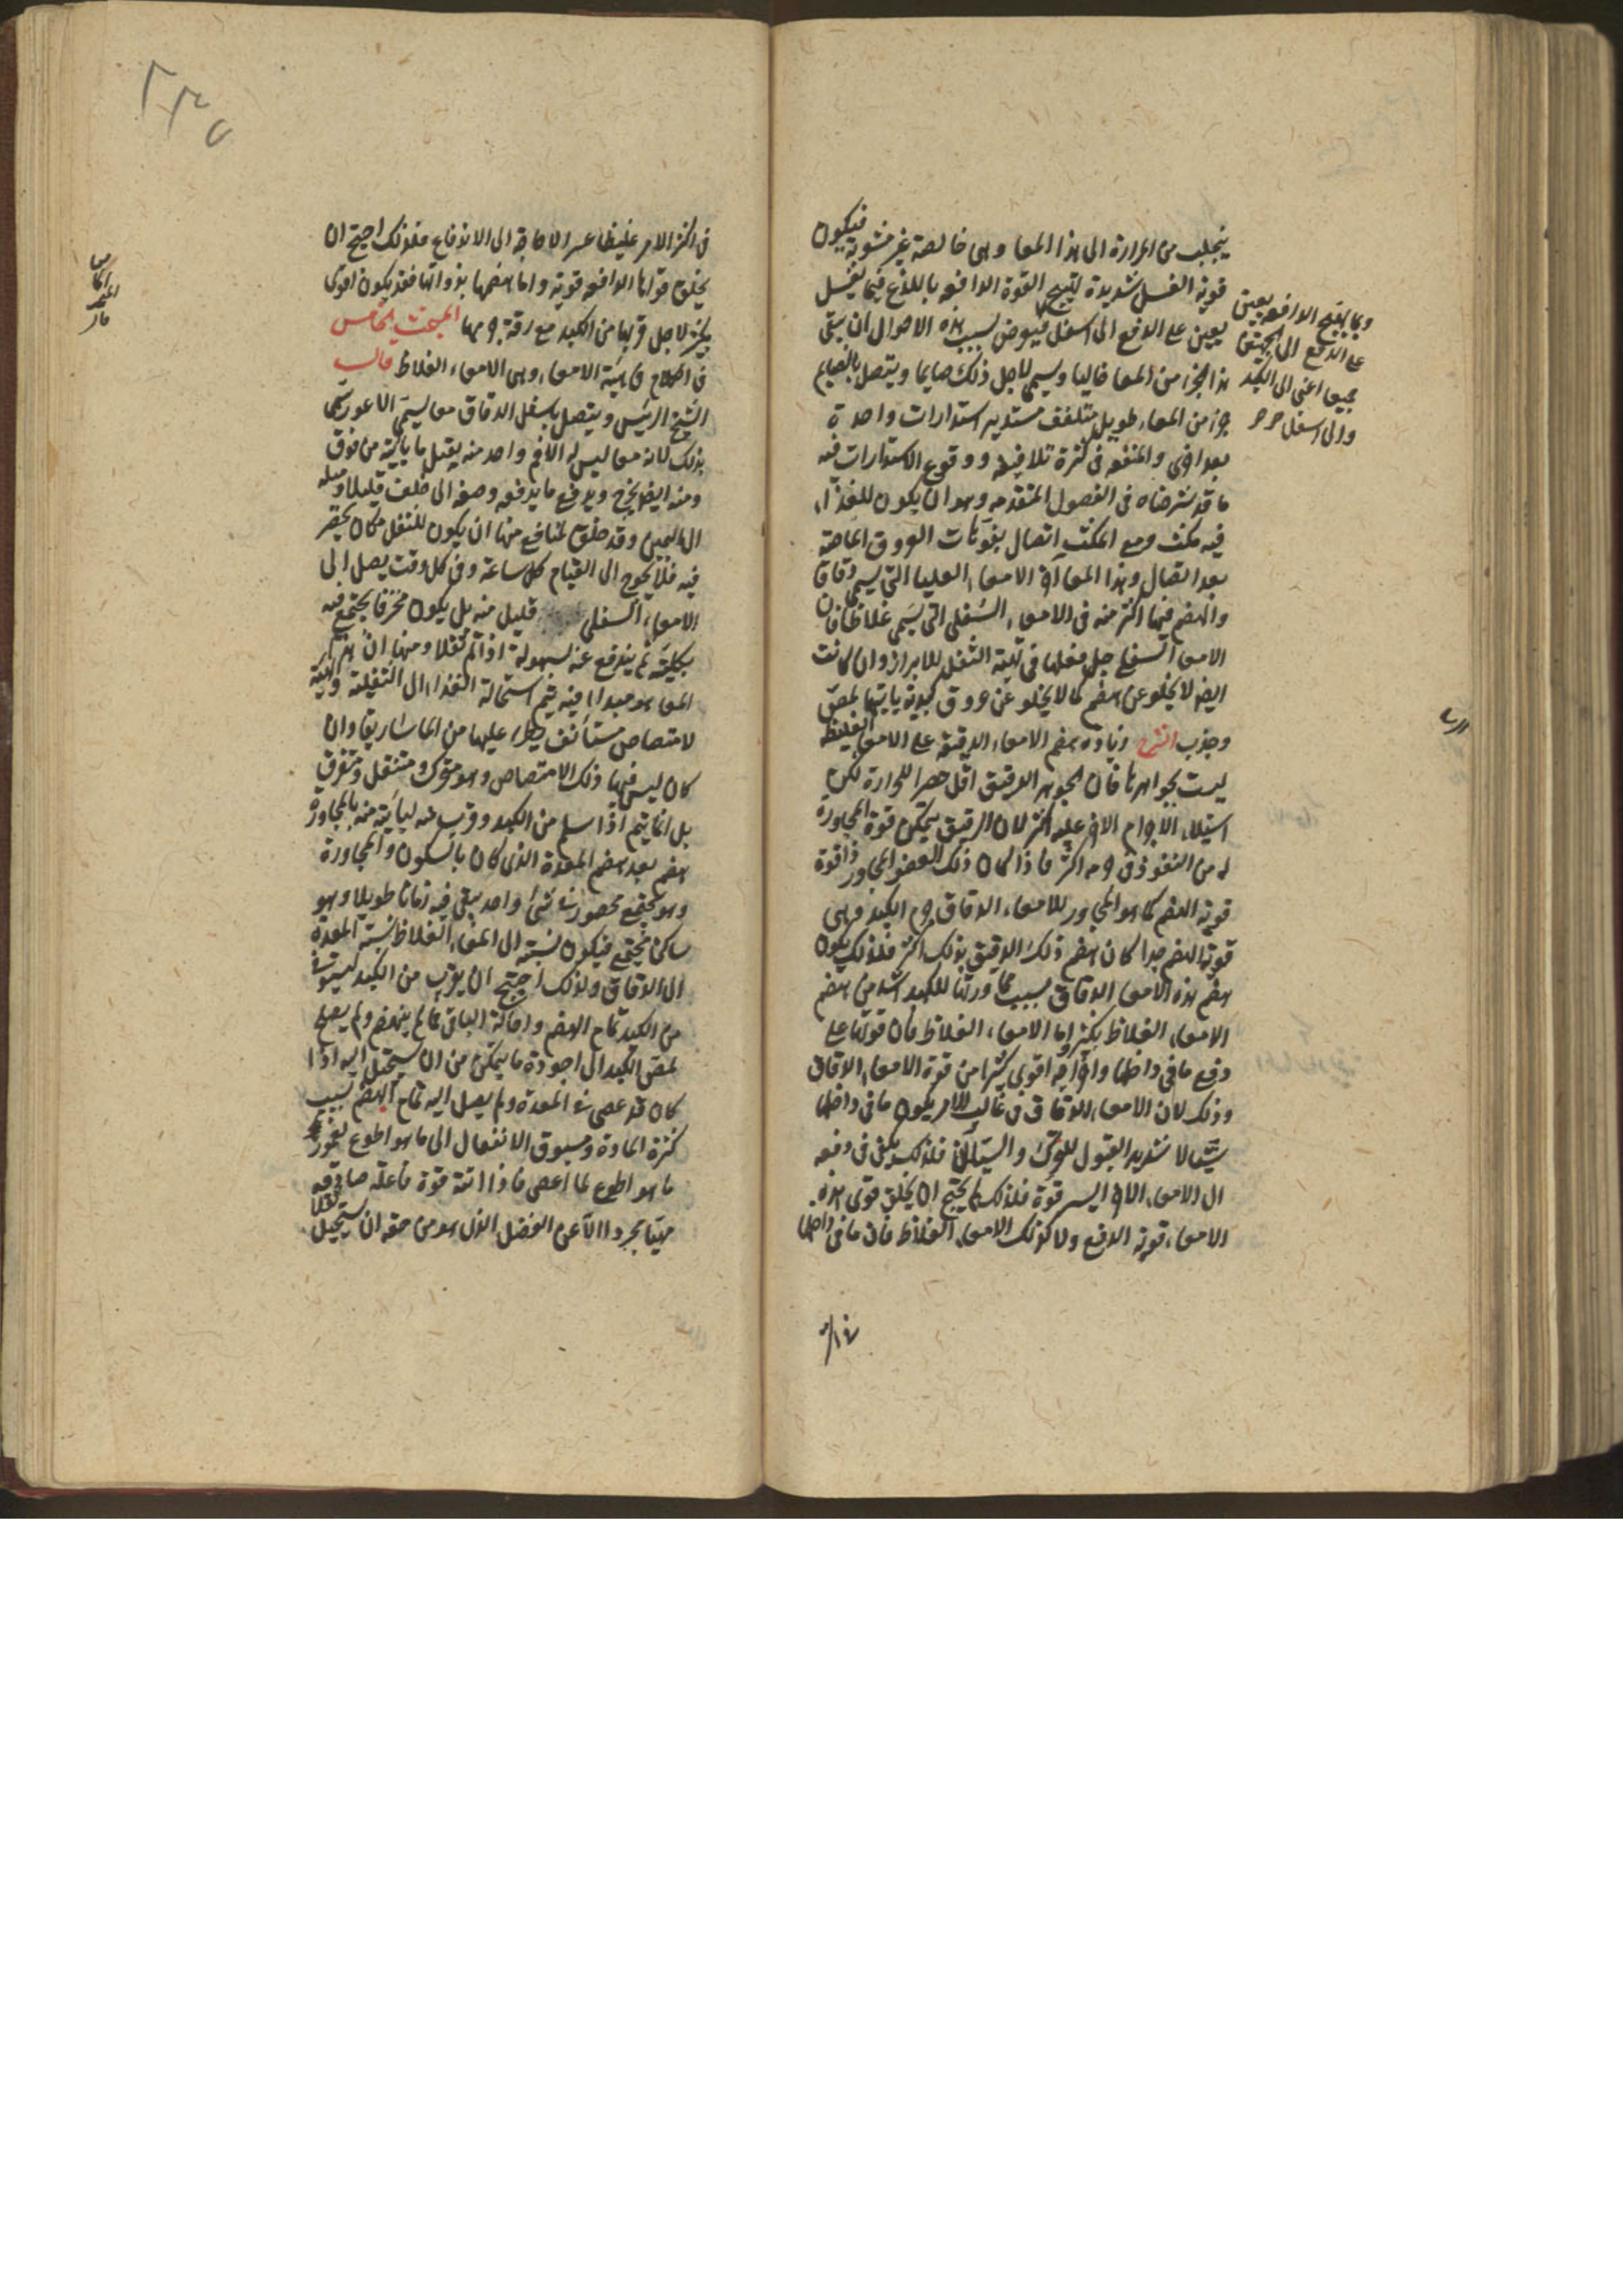 ينجلب من المرارة الى هذا المعا وهى خالصة غير مشوبة فيكون
قوية الغسل شديدة لتهيج القوة الدافعه باللذع فيما يغسل
يعين على الدفع الى اسفل فيعرض بسبب هذه الاحوال ان يبقى
هذا الجزء من المعا خاليا ويسمى لاجل ذلك صايما ويتصل بالصايم
جزء من المعاء طويل متلفف مستدير استدارات واحدة
بعد اخرى والمنفعه فى كثرة تلافيفه ووقوع الاستدارات فيه
ما قد شرحناه فى الفصول المتقدمه وهو ان يكون للغذاء
فيه مكث ومع المكث اتصال بفوهات العروق الماصة
بعد اتصال وهذا المعا آخر الامعاء العليا التى يسمى دقاقا
والهضم فيها اكثر منه فى الامعاء السفلى التى يسمى غلاظا فان
الامعا السفلى جل فعلها فى تهية الثفل للابراز وان كانت
ايضا لا يخلو عن هضم كما لا يخلو عن عروق كبدية ياتيها بمص
وجذب الشرح زياده هضم الامعاء الدقيقه على الامعا الغليظة
ليست بجواهرها فان الجوهر الدقيق اقل حصرا للحرارة لكن
استيلاء الاجرام الاخر عليه اكثر لان الرقيق يتمكن قوة المجاورة
له من النفوذ فى جرمه اكثر فاذا كان ذلك العضو المجاور ذا قوة
قوية الهضم كما هو المجاور للامعاء الدقاق جرم الكبد وهى
قوية الهضم جدا كان هضم ذلك الدقيق بذلك اكثر فلذلك يكون
هضم هذه الامعا الدقاق بسبب مجاورتها للكبد اشد من هضم
الامعاء الغلاظ بكثير واما الامعاء الغلاظ فان قوتها على
دفع ما فى داخلها واخراجه اقوى كثيرا من قوة الامعاء الدقاق
وذلك لان الامعاء الدقاق فى غالب الامر يكون ما فى داخلها
سيالا شديد القبول للتحرك والسيلان فلذلك يكفى فى دفعه
الى الامعاء الاخر ايسر قوة فلذلك لم يحتج ان يخلق قوى هذه
الامعاء قوية الدفع ولا كذلك الامعاء الغلاظ فان ما فى داخلها
وبما يهيج الدافعه يعين
على الدفع الى الجهتين
جميعا اعنى الى الكبد
والى اسفل
فى اكثر الامر غليظا عسر الاجابة الى الاندفاع فلذلك احتيج ان
يخلق قواها الدافعه قوية واما هضمها بذواتها فقد يكون اقوى
بكثير لاجل قربها من الكبد مع رقة جرمها المبحث الخامس
فى الكلام فى هية الامعاء وهى الامعاء الغلاظ قال
الشيخ الرئيس ويتصل باسفل الدقاق معا يسمى الاعور سمى
بذلك لانه معا ليس له الا فم واحد منه يقبل ما ياتيه من فوق
ومنه ايضا يخرج ويدفع ما يدفعه وضعه الى خلف قليلا وميله
الى اليمين وقد خلق لمنافع منها ان يكون للثفل مكان يحصر
فيه فلا يحوج الى القيام كل ساعة وفى كل وقت يصل الى
الامعاء السفلى قليل منه بل يكون مخزنا يجتمع فيه
بكليته ثم يندفع عنه بسهولة اذا تم ثفلا ومنها ان هذا
المعا هو مبدا فيه يتم استحالة الغذاء الى الثفلية وتهية
لامتصاص مستأنف يطرأ عليها من الماساريقا وان
كان ليس فيها ذلك الامتصاص وهو متحرك ومنتقل ومتفرق
بل انما يتم اذا سلم من الكبد وقرب منه ليأتيه منه بالمجاورة
هضم بعد هضم المعدة الذى كان بالسكون والمجاورة
وهو مجتمع محصور فى شئ واحد يبقى فيه زمانا طويلا وهو
ساكن مجتمع فيكون نسبته الى المعاء الغلاظ نسبة المعدة
الى الدقاق ولذلك احتيج ان يقرب من الكبد ليستوفى
من الكبد تمام الهضم واحالة الباقى مما لم ينهضم ولم يصلح
لمص الكبد الى اجود ما يمكن من ان يستحيل اليه اذا
كان قد عصى فى المعدة ولم يصل اليه تمام الهضم بسبب
كثرة المادة وسبوق الانفعال الى ما هو اطوع لغمور
ما هو اطوع لما اعصى فاذا اتته قوة فاعلة صادفته
مهيأ مجردا الا عن الفضل الذى هو من حقه ان يستحيل ثفلا